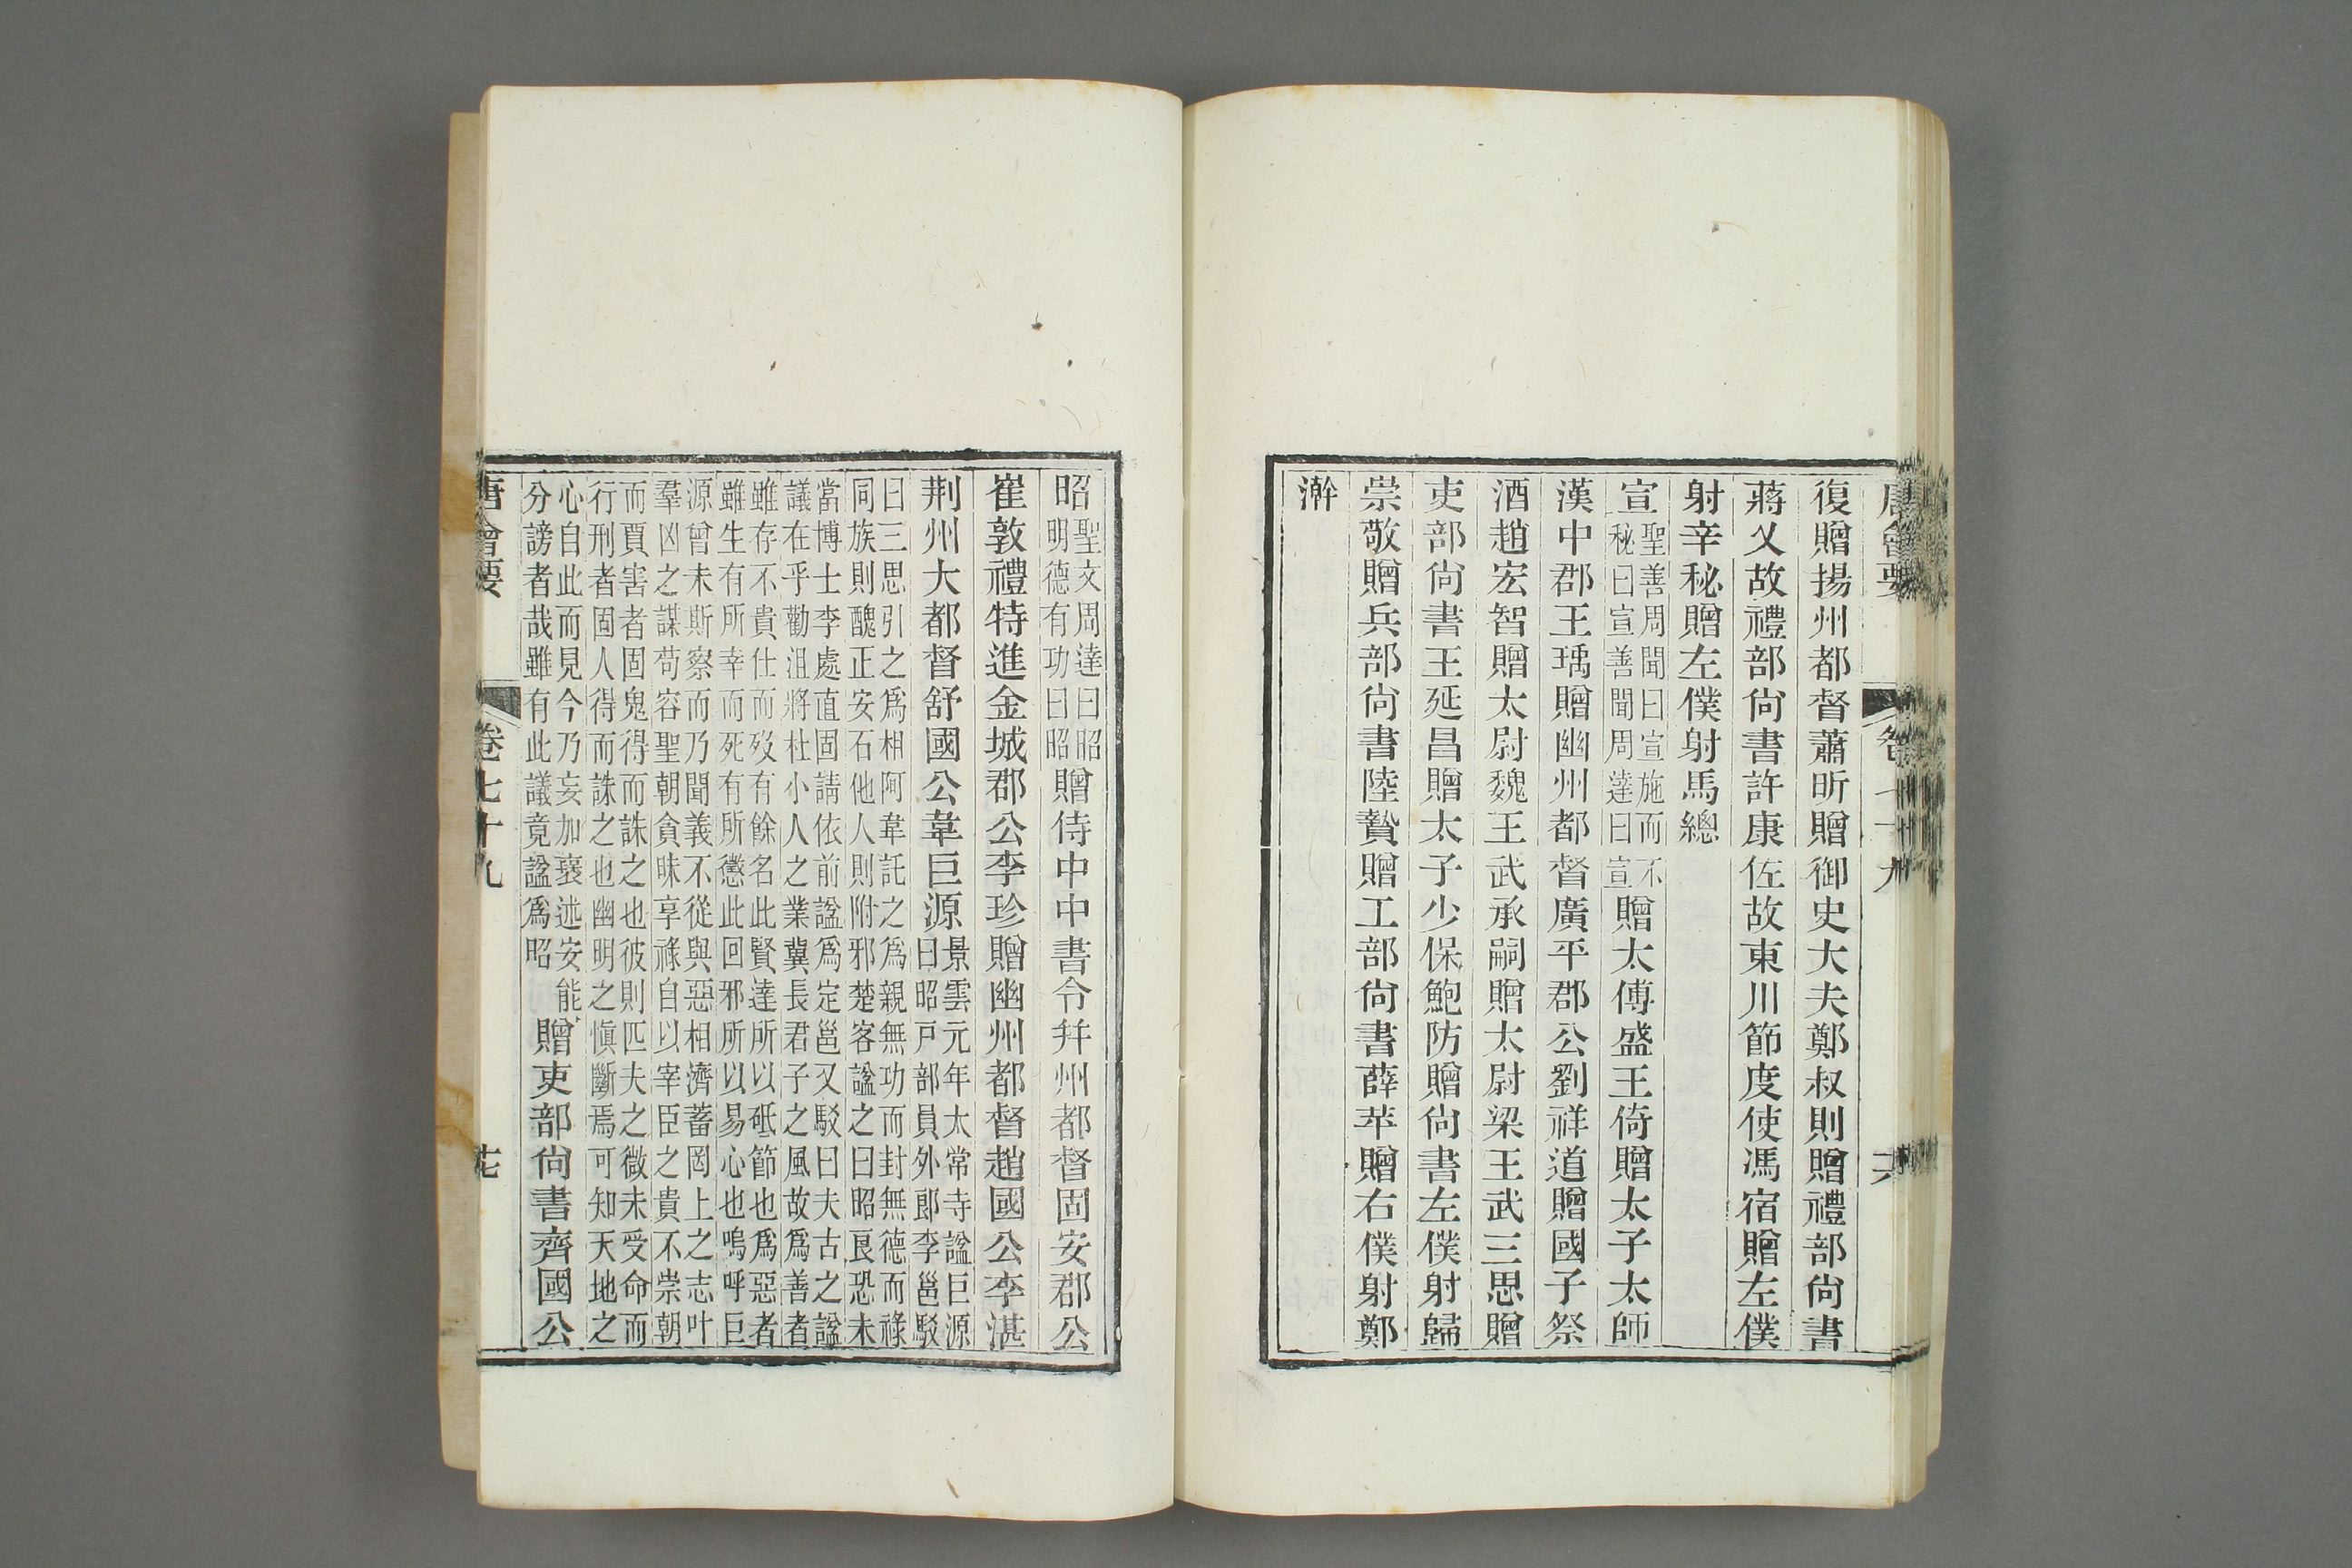 唐會要 卷七十九 六
復贈揚州都督蕭昕贈御史大夫鄭叔則贈禮部尙書
蔣乂故禮部尙書許康佐故東川節度使馮宿贈左僕
射辛秘贈左僕射馬總
宣聖善周聞曰宣施而不秘曰宣善聞周達曰宣贈太傅盛王倚贈太子太師
漢中郡王瑀贈幽州都督廣平郡公劉祥道贈國子祭
酒趙宏智贈太尉魏王武承嗣贈太尉梁王武三思贈
吏部尙書王延昌贈太子少保鮑防贈尙書左僕射歸
崇敬贈兵部尙書陸贄贈工部尙書薛苹贈右僕射鄭
澣
昭聖文周達曰昭明德有功曰昭贈侍中中書令幷州都督固安郡公
崔敦禮特進金城郡公李珍贈幽州都督趙國公李湛
荆州大都督舒國公韋巨源景雲元年太常寺諡巨源曰昭戶部員外郎李邕駁
曰三思引之爲相阿韋託之爲親無功而封無德而祿
同族則醜正安石他人則附邪楚客諡之曰昭良恐未
當博士李處直固請依前諡爲定邕又駁曰夫古之諡
議在乎勸沮將杜小人之業冀長君子之風故爲善者
雖存不貴仕而歿有餘名此賢達所以砥節也爲惡者
雖生有所幸而死有所懲此回邪所以易心也嗚呼巨
源曾未斯察而乃聞義不從與惡相濟蓄罔上之志叶
羣凶之謀苟容聖朝貪昧享祿自以宰臣之貴不崇朝
而賈害者固鬼得而誅之也彼則匹夫之微未受命而
行刑者固人得而誅之也幽明之愼斷焉可知天地之
心自此而見今乃妄加褒述安能
分謗者哉雖有此議竟諡爲昭贈吏部尙書齊國公
唐會要 卷七十九 七